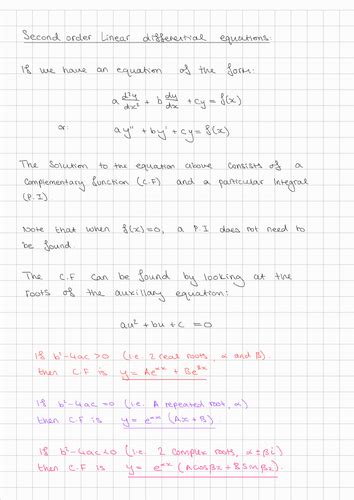 Second order Linear differential equations.
If we have an equation of the form:
a d²y/dx² + b dy/dx + cy = f(x)
or:
ay'' + by' + cy = f(x)
The Solution to the equation above consists of a
Complementary function (C.F) and a particular Integral
(P.I)
Note that when f(x)=0, a P.I does not need to
be found.
The C.F can be found by looking at the
roots of the auxillary equation:
au² + bu + c = 0
If b²-4ac > 0 (i.e. 2 real roots, α and β)
then C.F is y = Ae^αx + Be^βx
If b²-4ac = 0 (i.e. A repeated root, α)
then C.F is y = e^αx (Ax + B)
If b²-4ac < 0 (i.e. 2 complex roots, α ± βi)
then C.F is y = e^αx (A cos βx + B sin βx).